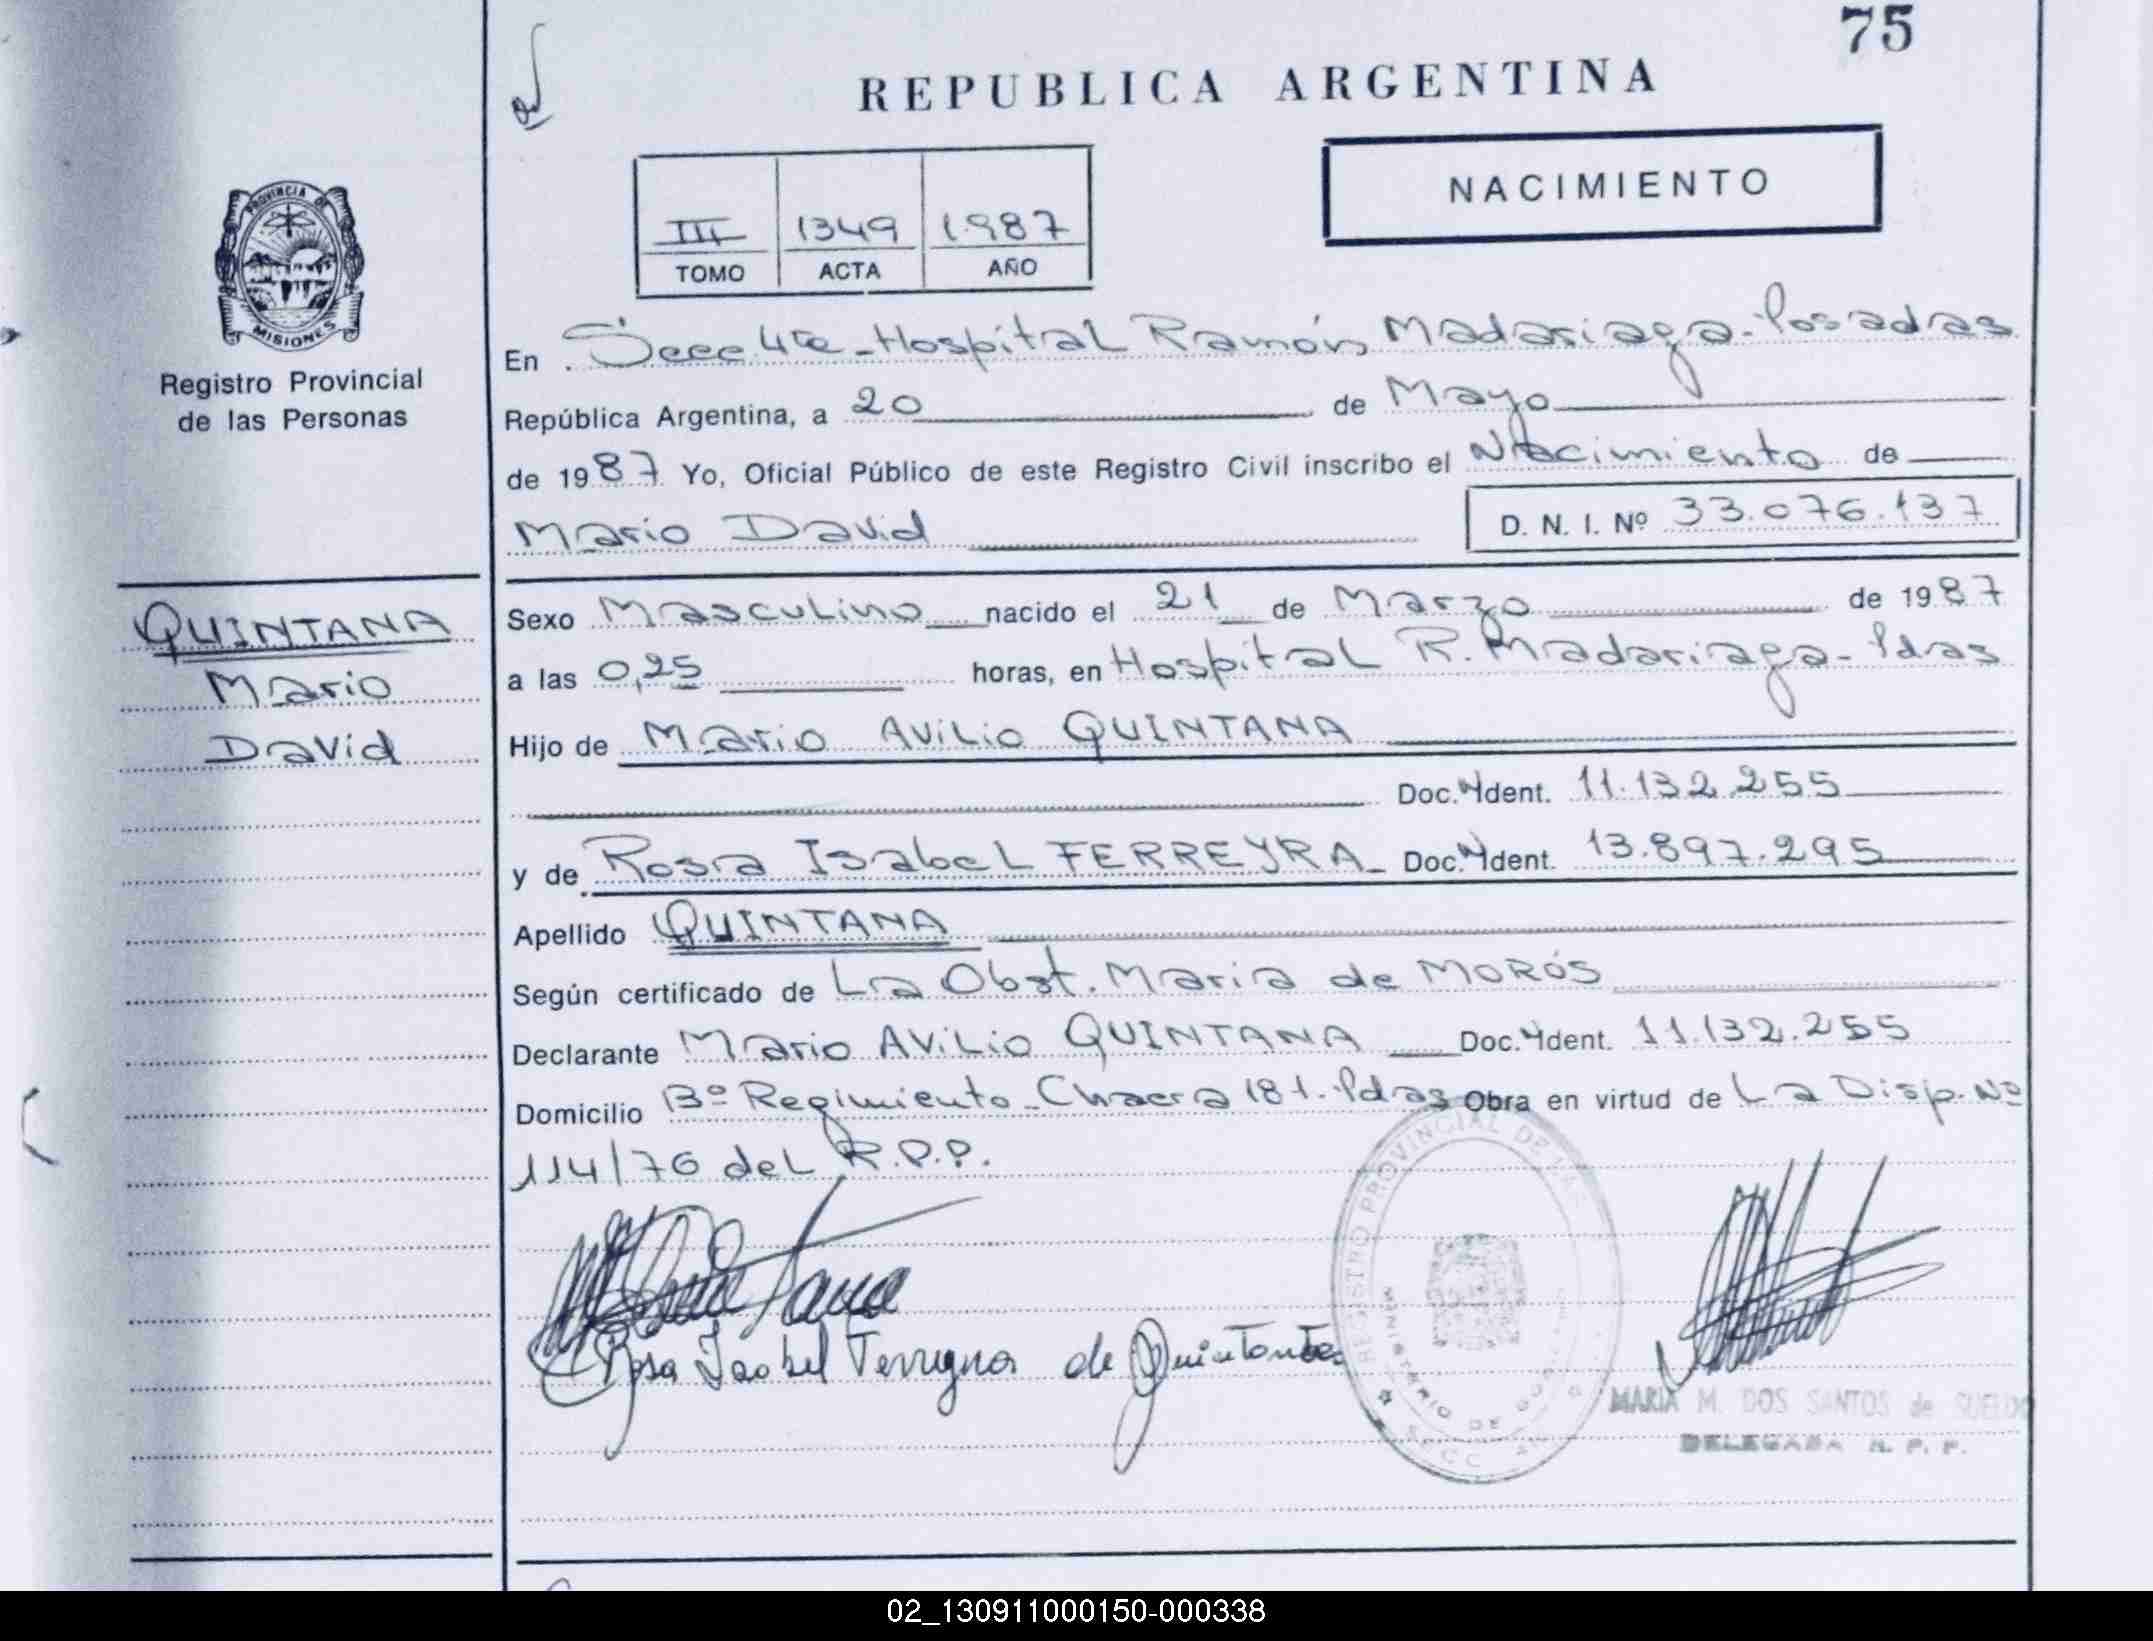 75
REPUBLICA ARGENTINA
NACIMIENTO
III 1349 1.987
TOMO ACTA AÑO
PROVINCIA DE
MISIONES
Registro Provincial
de las Personas
En Secc 4ta - Hospital Ramón Madariaga - Posadas
República Argentina, a 20 de Mayo
de 1987 Yo, Oficial Público de este Registro Civil inscribo el Nacimiento de
Mario David D. N. I. Nº 33.076.137
QUINTANA
Mario
David
Sexo Masculino nacido el 21 de Marzo de 1987
a las 0,25 horas, en Hospital R. Madariaga - Pdas
Hijo de Mario AviLio QUINTANA
Doc. Ident. 11.132.255
y de Rosa Isabel FERREYRA Doc. Ident. 13.897.295
Apellido QUINTANA
Según certificado de La Obst. Maria de MORÓS
Declarante Mario AviLio QUINTANA Doc. Ident. 11.132.255
Domicilio Bº Regimiento - Chacra 181. Pdas Obra en virtud de La Disp. Nº
114/76 del R.P.P.
Rosa Isabel Ferreyra de Quintana
REGISTRO PROVINCIAL DE LAS
MINISTERIO DE
MARIA M. DOS SANTOS de SUELDO
DELEGADA R. P. P.
02_130911000150-000338